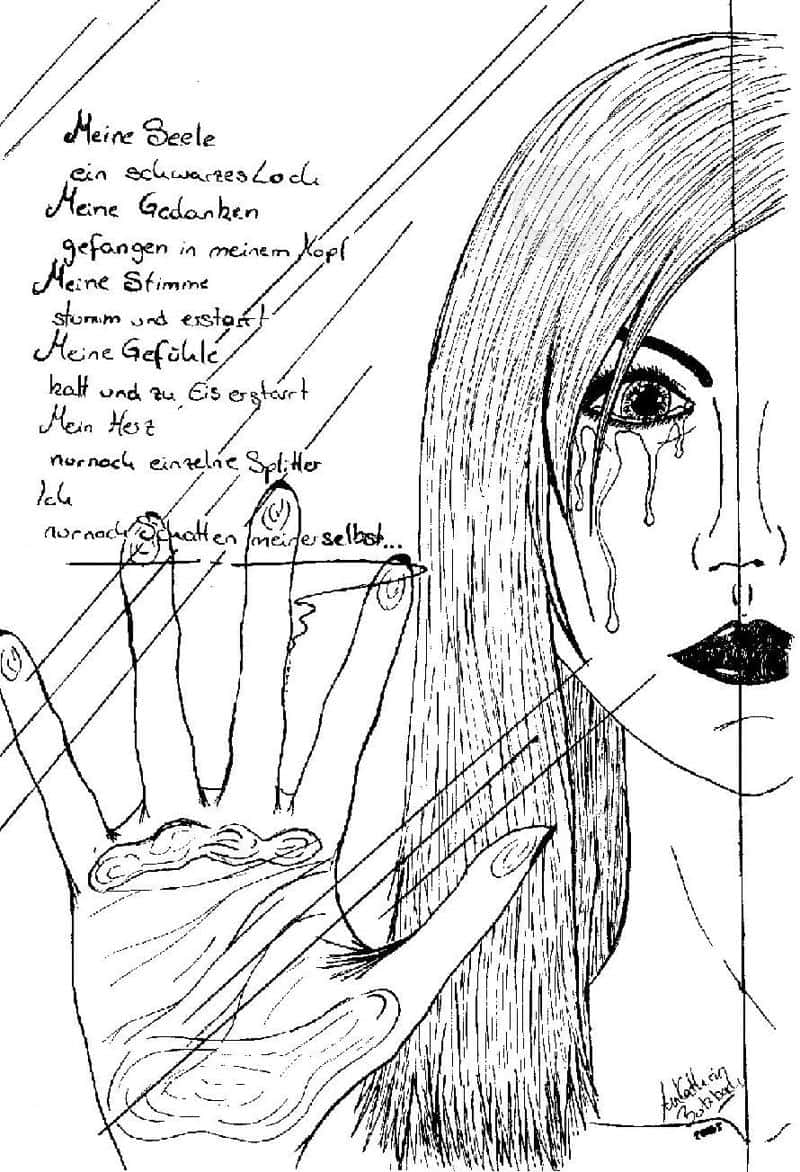 Meine Seele
ein schwarzes Loch
Meine Gedanken
gefangen in meinem Kopf
Meine Stimme
stumm und erstarrt
Meine Gefühle
kalt und zu Eis erstarrt
Mein Herz
nurnoch einzelne Splitter
Ich
nurnoch Schatten meinerselbst...